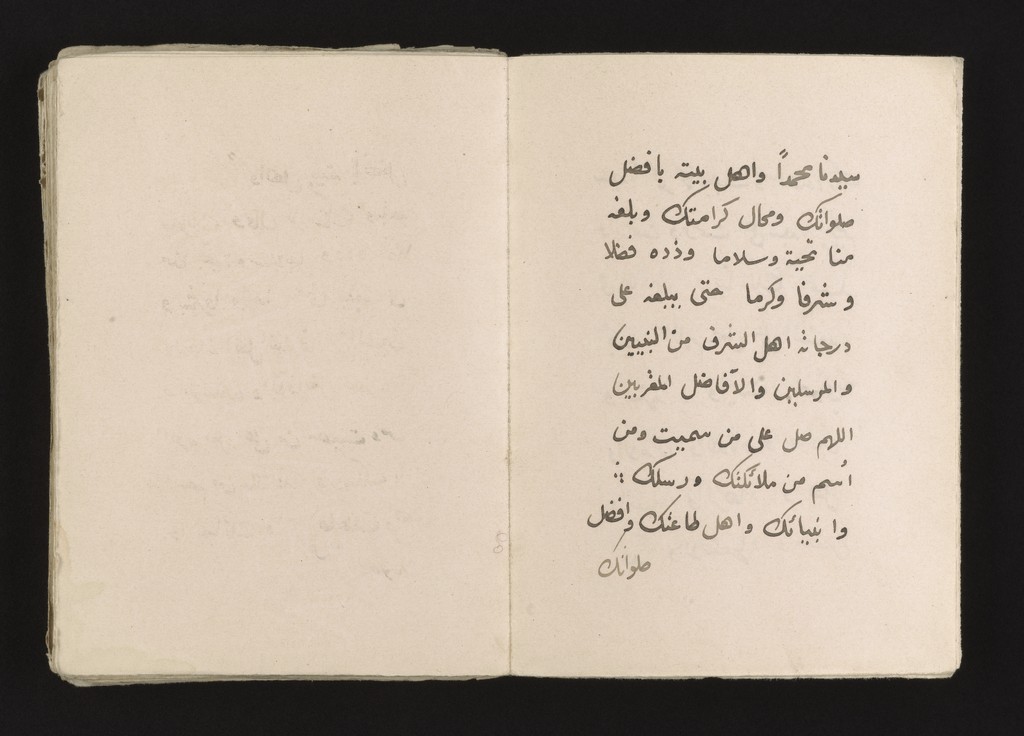 سيدنا محمداً واهل بيته بافضل
صلواتك ومحال كرامتك وبلغه
منا تحية وسلاما وزده فضلا
و شرفا وكرما حتى يبلغه على
درجاته اهل الشرف من النبيين
والمرسلين والآفاضل المقربين
اللهم صل على من سميت ومن
اُسم من ملائكتك ورسلك
وانبيائك واهل طاعتك وافضل
صلواتك